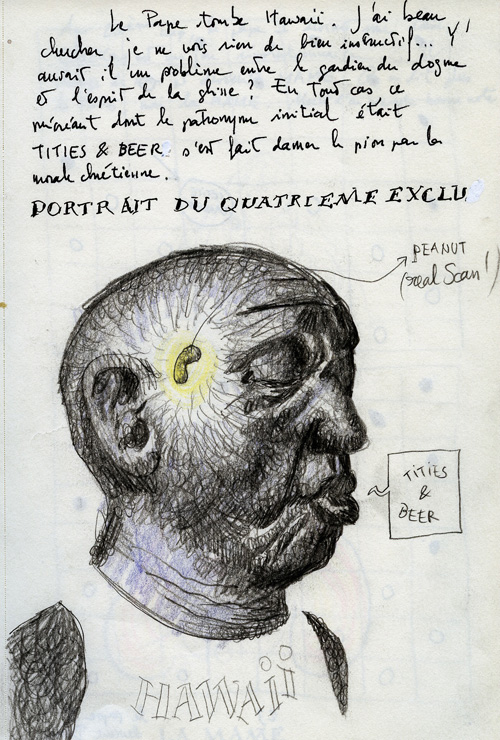 Le Pape tombe Hawaii. J'ai beau
chercher je ne vois rien de bien instructif... Y
aurait-il un problème entre le gardien du dogme
et l'esprit de la glisse ? En tout cas ce
mécréant dont le patronyme initial était
TITIES & BEER s'est fait damer le pion par la
morale chrétienne.
PORTRAIT DU QUATRIEME EXCLU
PEANUT
(real Scan !)
TITIES
&
BEER
HAWAII